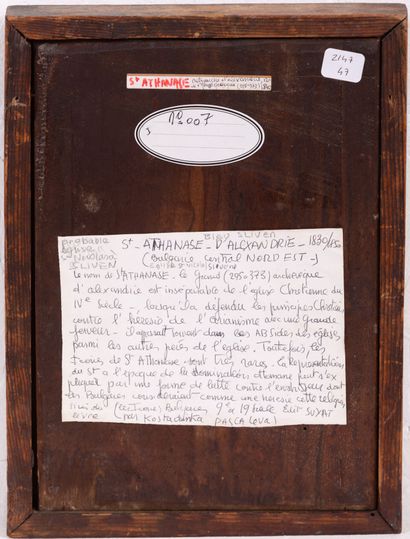 2147
47
St ATHANASE
No 007
BIED SLIVEN
probable
église
St Nicolas
SLIVEN
St - ATHANASE - D'ALEXANDRIE - 1830/
(Bulgarie central NORD EST -)
Le nom de St ATHANASE - le Grand (295 @ 373) archevêque
d'alexandrie est inséparable de l'église Chrétienne du
IVe siècle - lorsqu'il a défendu les principes Chrétiens
contre l'hérésie de l'arianisme avec une grande
ferveur - il apparaissait dans les ABSIDES des églises
parmi les autres pères de l'église. Toutefois, les
Icones de St Athanase sont très rares. La Représentation
du St a l'époque de la domination ottomane peut s'ex
pliquer par une forme de lutte contre l'envahisseur dont
les Bulgares considéraient comme une hérésie cette religion
tiré du (les Icones Bulgares 9e a 19 siècle Edit SUYAT
livre par Kostadinka PASCALOVA)